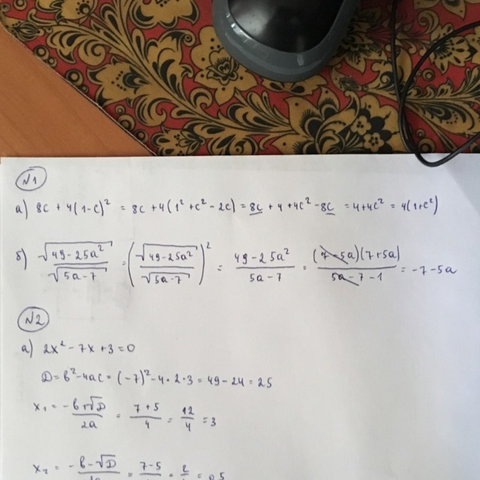 №1
а) 8c + 4(1-c)² = 8c + 4(1² + c² - 2c) = 8c + 4 + 4c² - 8c = 4+4c² = 4(1+c²)
б) √(49-25a²) / √(5a-7) = (√(49-25a²) / √(5a-7))² = (49-25a²) / (5a-7) = (7-5a)(7+5a) / (5a-7-1) = -7-5a
№2
а) 2x² - 7x + 3 = 0
D = b² - 4ac = (-7)² - 4·2·3 = 49 - 24 = 25
x₁ = (-b+√D) / 2a = (7+5) / 4 = 12/4 = 3
x₂ = -b-√D = 7-5 = 2 = 0,5